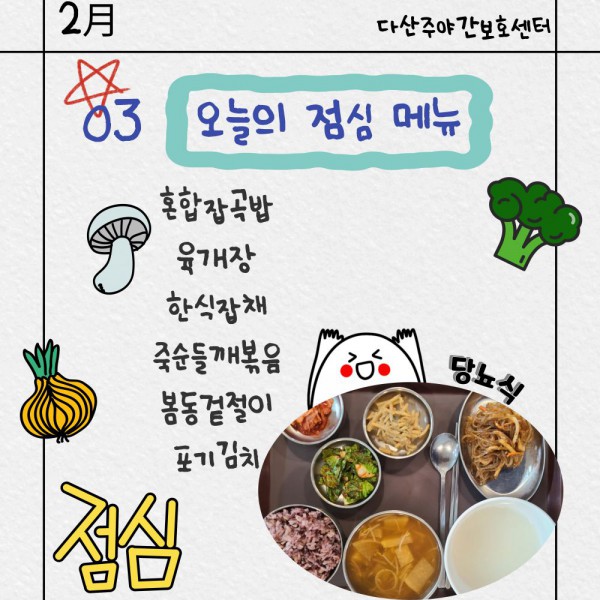 2月
다산주야간보호센터
03
오늘의 점심 메뉴
혼합잡곡밥
육개장
한식잡채
죽순들깨볶음
봄동겉절이
포기김치
당뇨식
점심